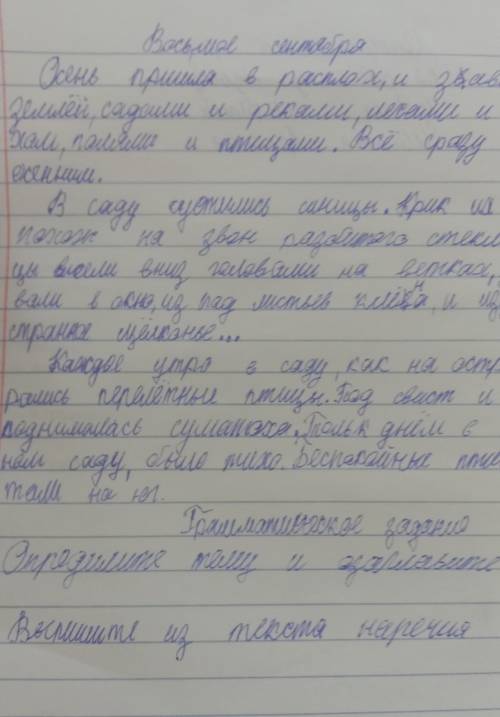 Восьмое сентября
Осень пришла в расплох, и зав
землёй, садами и реками, лесами и
хом, полями и птицами. Всё сразу
осенним.
В саду суетились синицы. Крик их
похож на звон разбитого стекл
цы висели вниз головами на ветках,
вали в окно, из под листьев клёна, и
странное щёлканье...
Каждое утро в саду, как на остр
рались перелётные птицы. Под свист и
поднималась суматоха. Тольк днём в
нем саду, было тихо. Беспокойные пти
тели на юг.
Грамматическое задание
Определите тему и озаглавьте
Выпишите из текста наречия